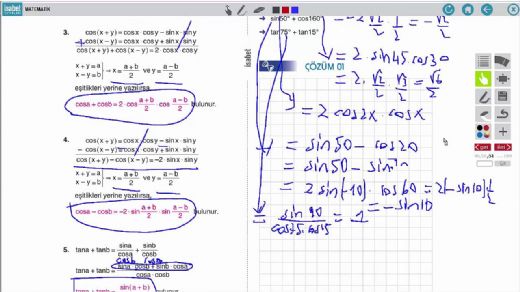 isabet
MATEMATİK
3. cos(x + y) = cosx · cosy – sinx · siny
cos(x – y) = cosx · cosy + sinx · siny
cos(x + y) + cos(x – y) = 2 · cosx · cosy
x + y = a
x – y = b
⇒ x = a+b/2 ve y = a–b/2
eşitlikleri yerine yazılırsa,
cosa + cosb = 2 · cos a+b/2 · cos a–b/2 bulunur.
4. cos(x + y) = cosx · cosy – sinx · siny
– cos(x – y) = cosx · cosy + sinx · siny
cos(x + y) – cos(x – y) = –2 · sinx · siny
x + y = a
x – y = b
⇒ x = a+b/2 ve y = a–b/2
eşitlikleri yerine yazılırsa,
cosa – cosb = –2 · sin a+b/2 · sin a–b/2 bulunur.
5. tana + tanb = sina/cosa + sinb/cosb
cosb cosa
tana + tanb = sina · cosb + sinb · cosa / cosa · cosb
tana + tanb = sin(a + b)
isabet
→ sin50° + cos160°
→ tan75° + tan15°
ÇÖZÜM 01
= -2 · √2/2 · 1/2 = -√2/2
= 2 · sin45 cos30
= 2 · √2/2 · √3/2 = √6/2
= 2 cos2x · cosx
= sin50 - cos20
= sin50 - sin70
= 2 sin(-10) · cos60 = 2(-sin10) 1/2
= -sin10
= sin90 / cos75 · cos15 =
geri
ileri